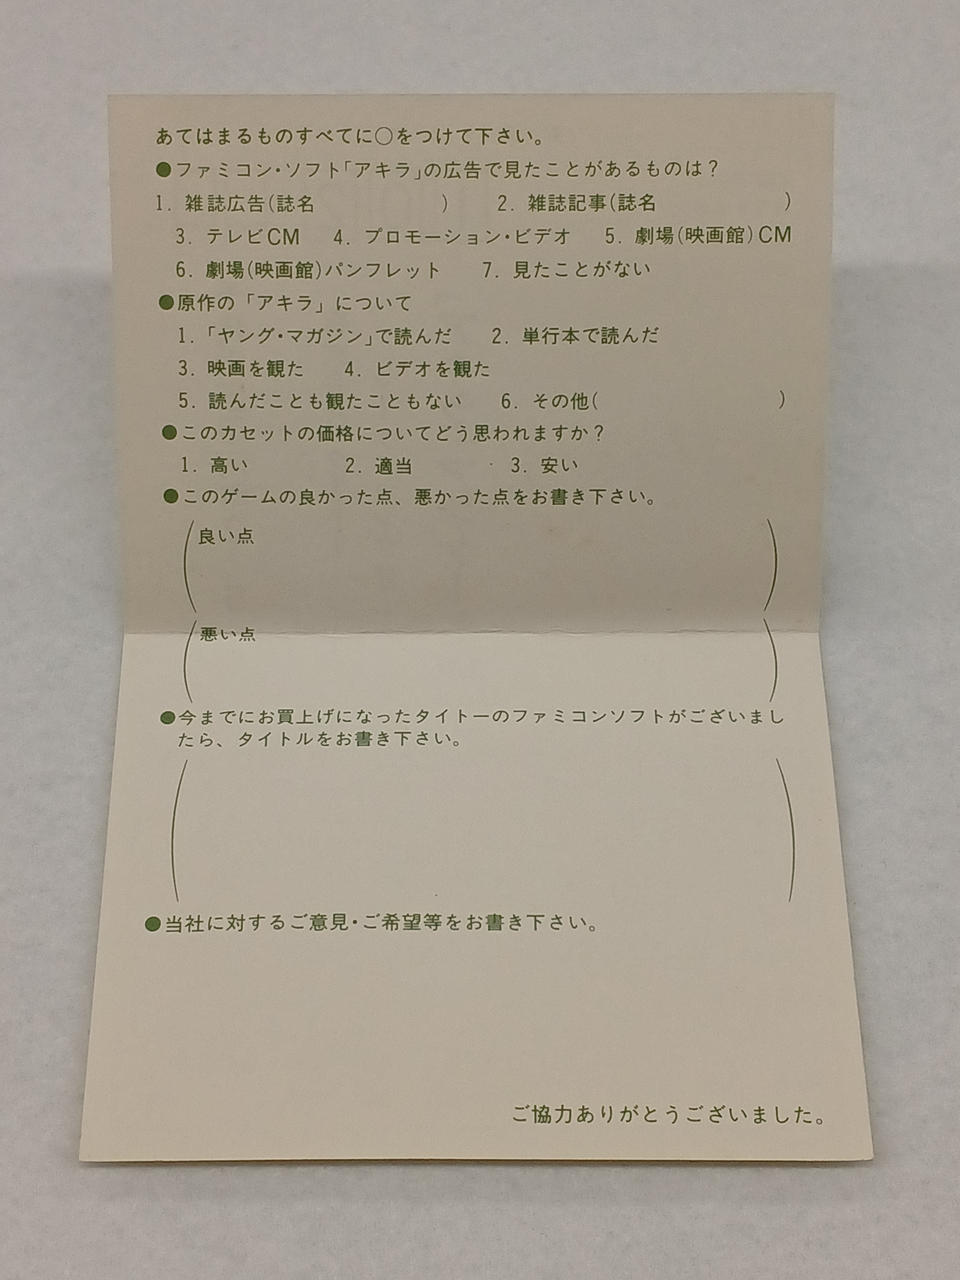 あてはまるものすべてに○をつけて下さい。
●ファミコン・ソフト「アキラ」の広告で見たことがあるものは？
1. 雑誌広告(誌名　　　　　　) 2. 雑誌記事(誌名　　　　　　)
3. テレビCM 4. プロモーション・ビデオ 5. 劇場(映画館)CM
6. 劇場(映画館)パンフレット 7. 見たことがない
●原作の「アキラ」について
1.「ヤング・マガジン」で読んだ 2. 単行本で読んだ
3. 映画を観た 4. ビデオを観た
5. 読んだことも観たこともない 6. その他(　　　　　　)
●このカセットの価格についてどう思われますか？
1. 高い 2. 適当 3. 安い
●このゲームの良かった点、悪かった点をお書き下さい。
(良い点　　　　　　)
(悪い点　　　　　　)
●今までにお買上げになったタイトーのファミコンソフトがございまし
たら、タイトルをお書き下さい。
(　　　　　　)
●当社に対するご意見・ご希望等をお書き下さい。
ご協力ありがとうございました。